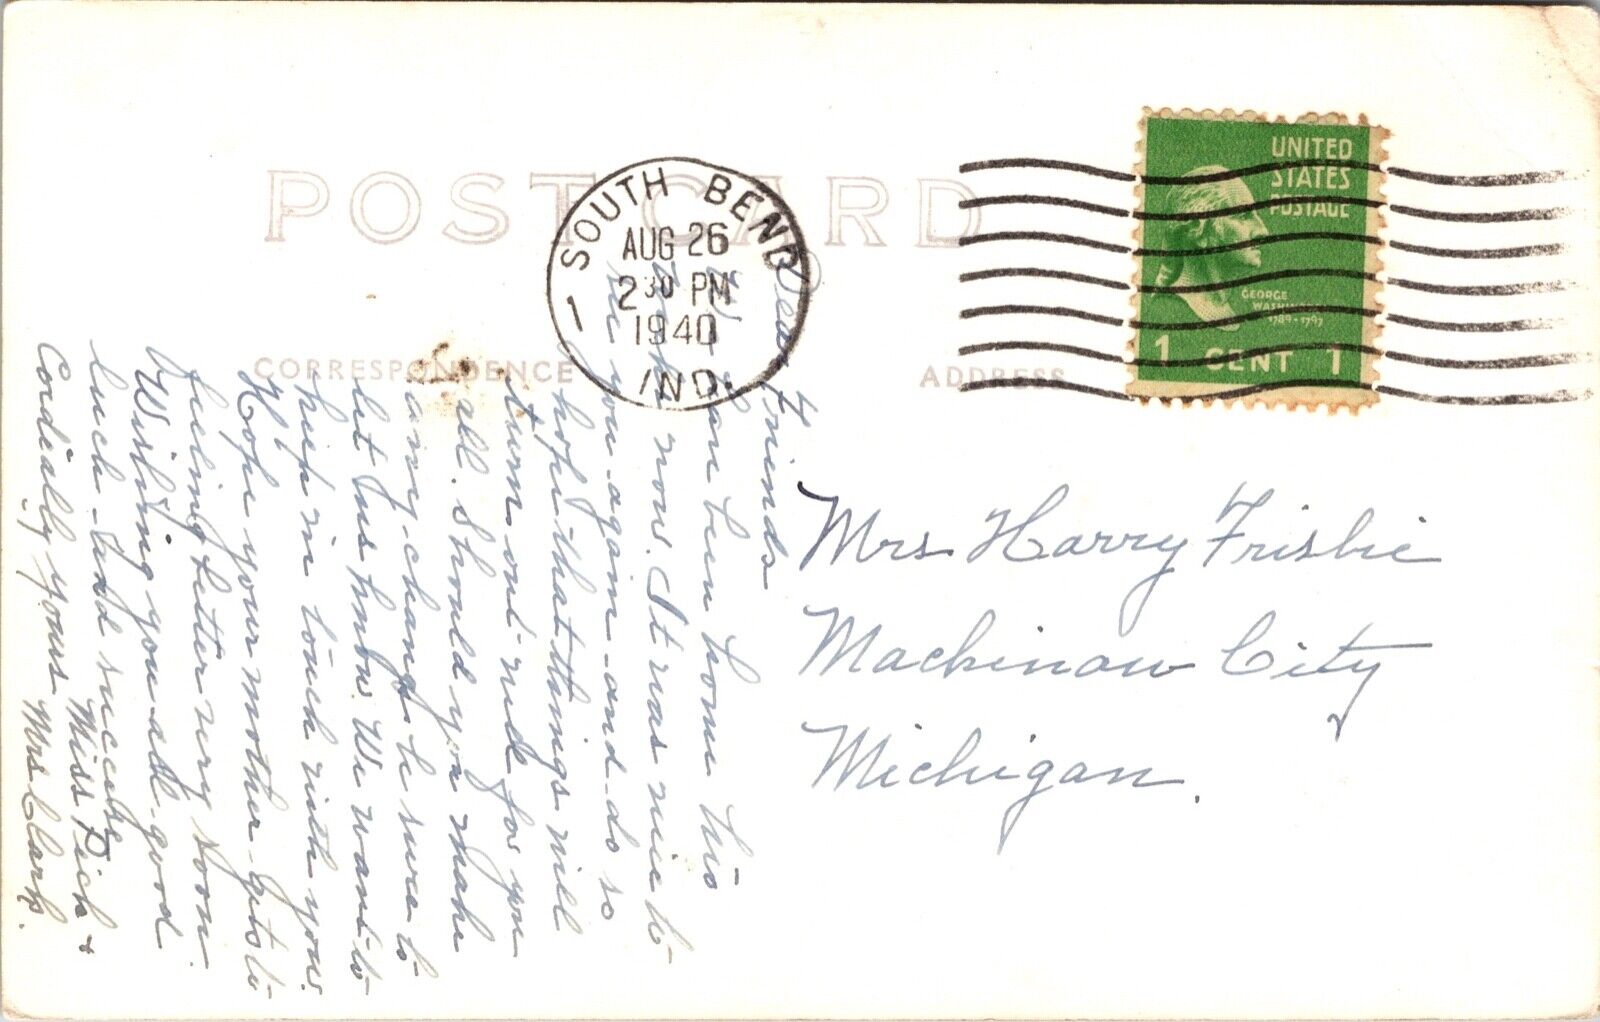 POST CARD
SOUTH BEND
AUG 26
2 30 PM
1940
IND.
UNITED
STATES
POSTAGE
GEORGE
1789-1797
1 CENT 1
CORRESPONDENCE
ADDRESS
Dear Friends
We have been home two
weeks now. It was nice to
see you again and do so
hope that things will
turn out well for you
all. Should you make
any change be sure to
let us know. We want to
keep in touch with you.
Hope your mother gets to
feeling better very soon.
Wishing you all good
luck and success,
Cordially yours
Miss Dick &
Mrs Clark.
Mrs Harry Frisbie
Mackinaw City
Michigan.